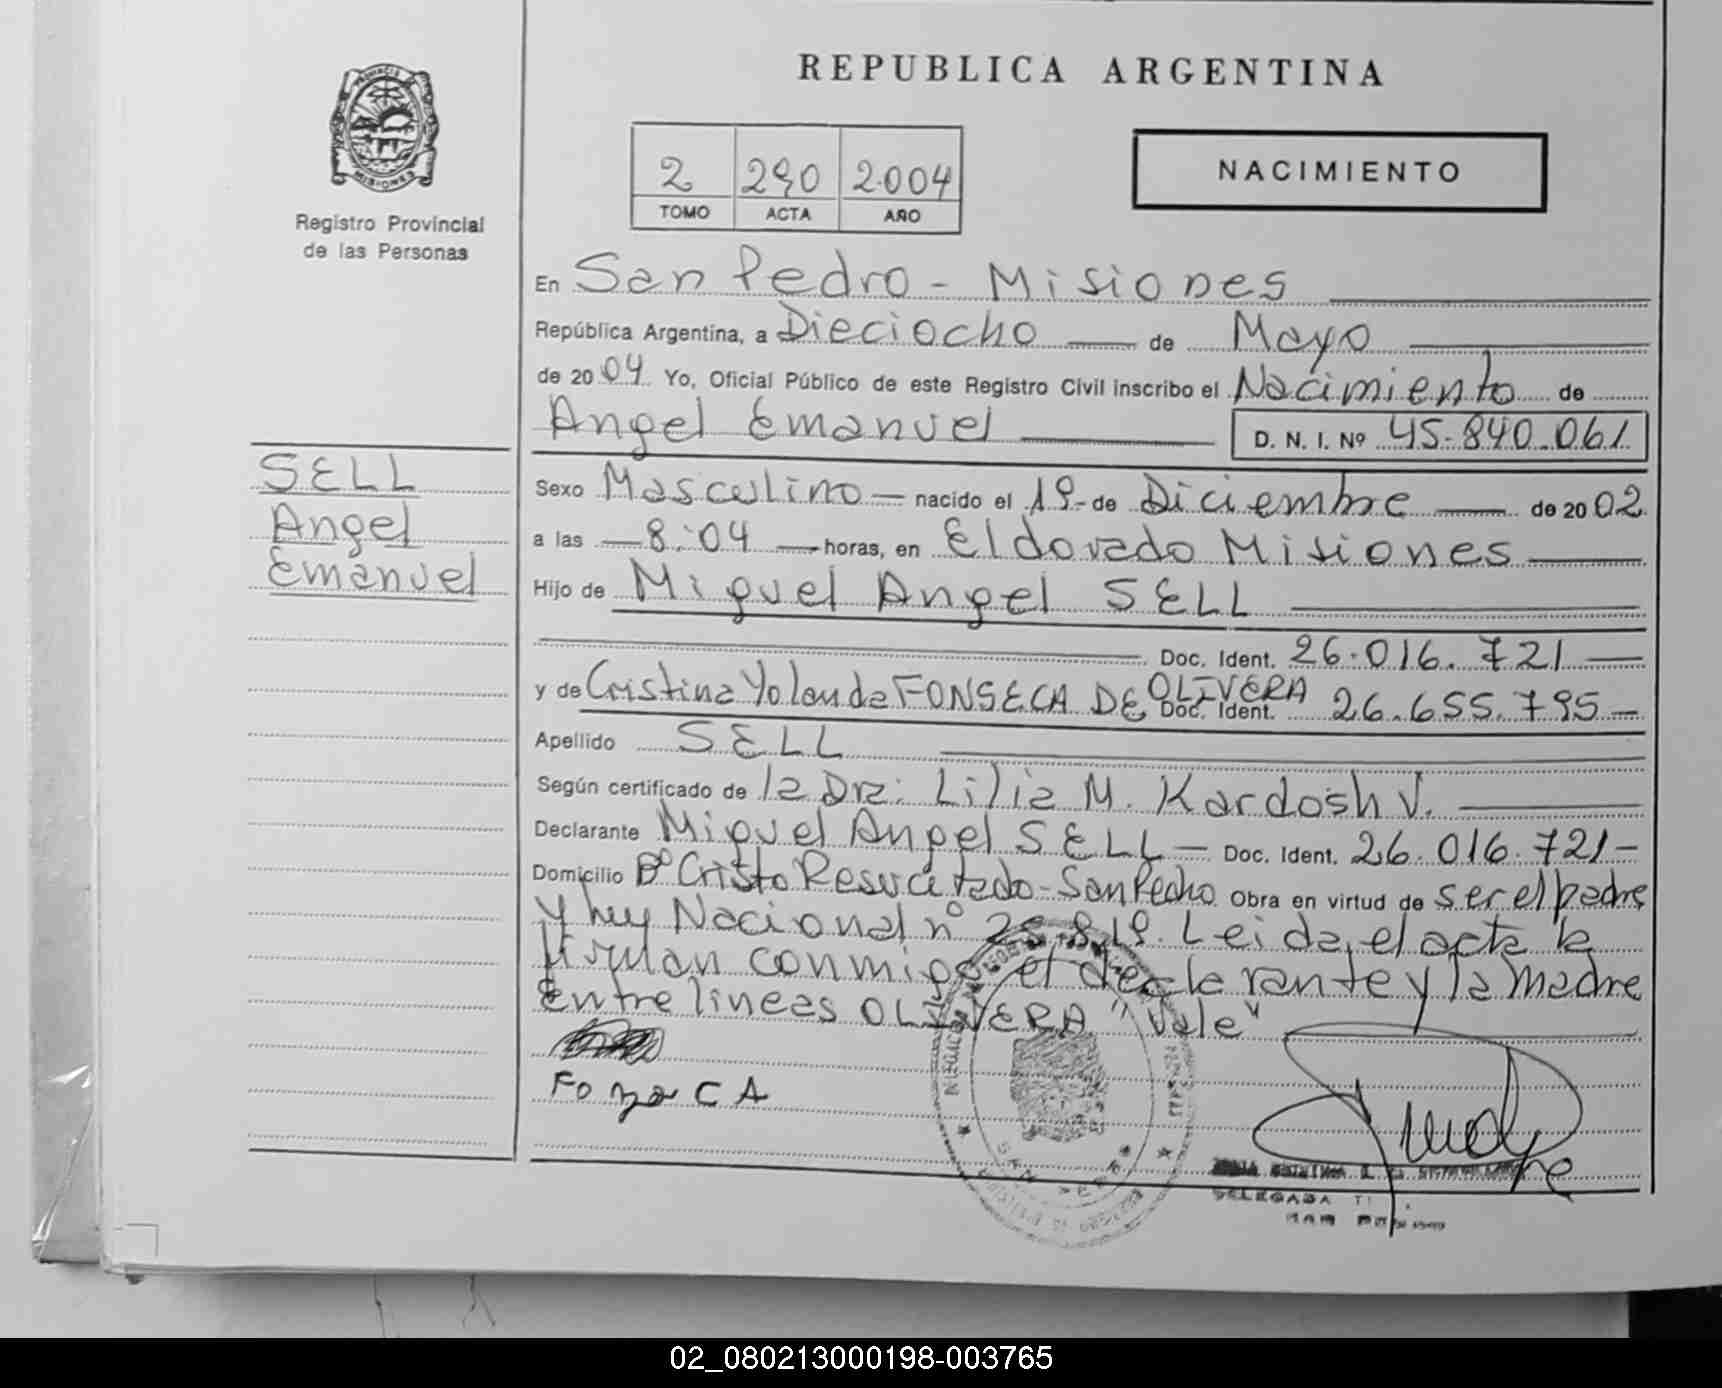 REPUBLICA ARGENTINA
2 290 2.004
TOMO ACTA AÑO
NACIMIENTO
PROVINCIA DE
MISIONES
Registro Provincial
de las Personas
En San Pedro - Misiones
República Argentina, a Dieciocho de Mayo
de 2004 Yo, Oficial Público de este Registro Civil inscribo el Nacimiento de
Angel Emanuel D. N. I. Nº 45.840.061
SELL
Angel
Emanuel
Sexo Masculino nacido el 19 de Diciembre de 2002
a las 8:04 horas, en Eldorado Misiones
Hijo de Miguel Angel SELL
Doc. Ident. 26.016.721
y de Cristina Yolanda FONSECA DE OLIVERA Doc. Ident. 26.655.795
Apellido SELL
Según certificado de la Dra: Lilia M. Kardosh V.
Declarante Miguel Angel SELL Doc. Ident. 26.016.721
Domicilio Bº Cristo Resucitado - San Pedro Obra en virtud de ser el padre
y ley Nacional nº 25.819. Leida el acta la
firman conmigo el declarante y la madre
Entre lineas OLIVERA "Vale"
DELEGADA
SAN PEDRO
02_080213000198-003765